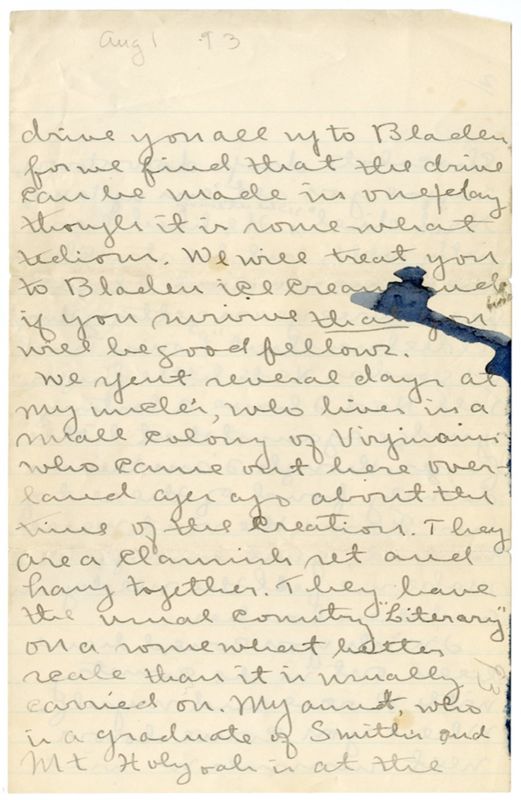 Aug 1 93
drive you all up to Bladen,
for we find that the drive
can be made in one day
though it is somewhat
tedious. We will treat you
to Bladen ice cream and
if you survive that you
will be good fellows.
We spent several days at
my uncle's, who lives in a
small colony of Virginians
who came out here over-
land ages ago about the
time of the Creation. They
are a clannish set and
hang together. They have
the usual country "Literary"
on a somewhat better
scale than it is usually
carried on. My aunt, who
is a graduate of Smiths and
Mt Holyoak is at the